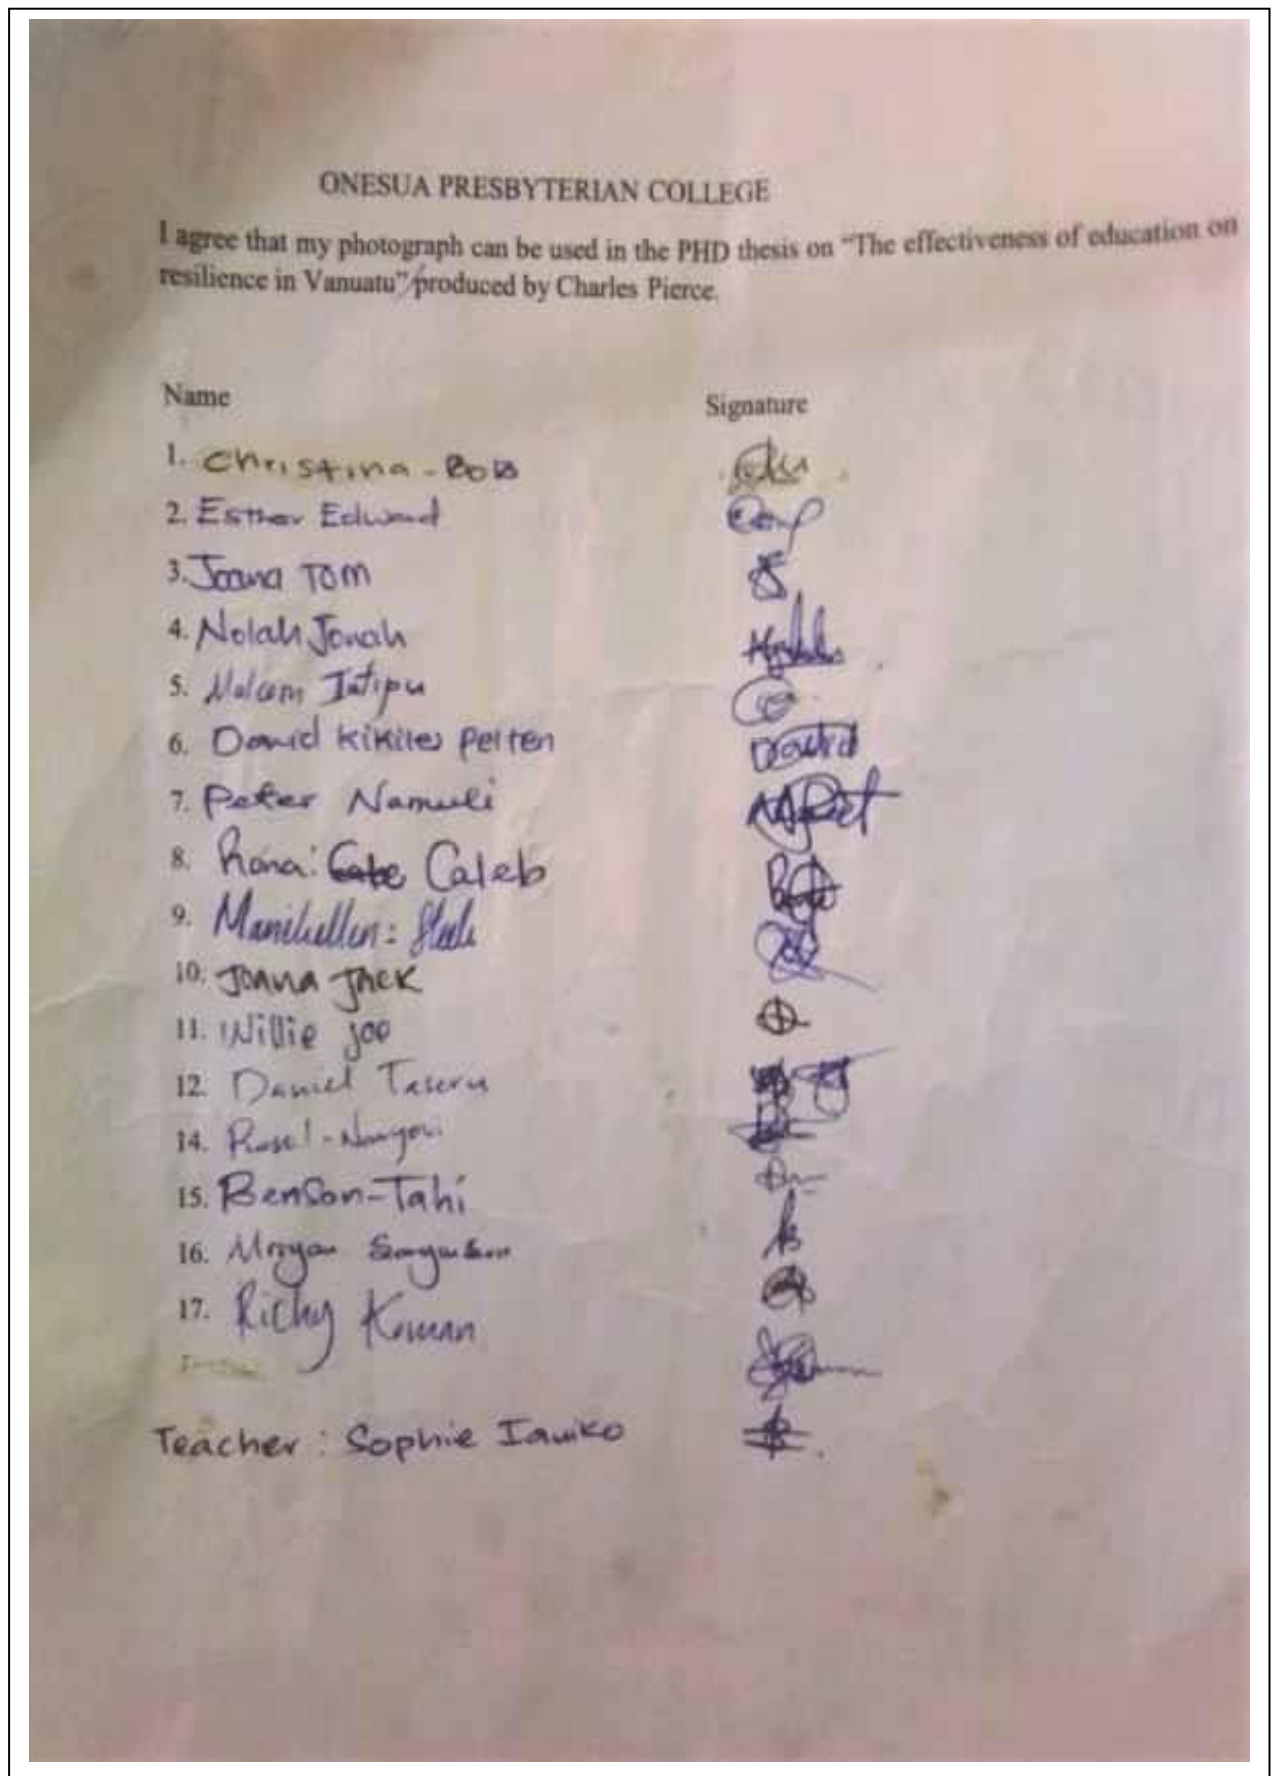 ONESUA PRESBYTERIAN COLLEGE
I agree that my photograph can be used in the PHD thesis on "The effectiveness of education on
resilience in Vanuatu" produced by Charles Pierce.
Name Signature
1. Christina - Bob
2. Esther Edward
3. Joana Tom
4. Nolah Jonah
5. Malcom Iatipu
6. David Kikiles Peiten David
7. Peter Namuli
8. Rona: Caleb
9.
10. Joana Jack
11. Willie Joe
12. Daniel Taseru
14.
15. Benson-Tahi
16. Morgan
17. Richy Kouman
Teacher : Sophie Iawiko